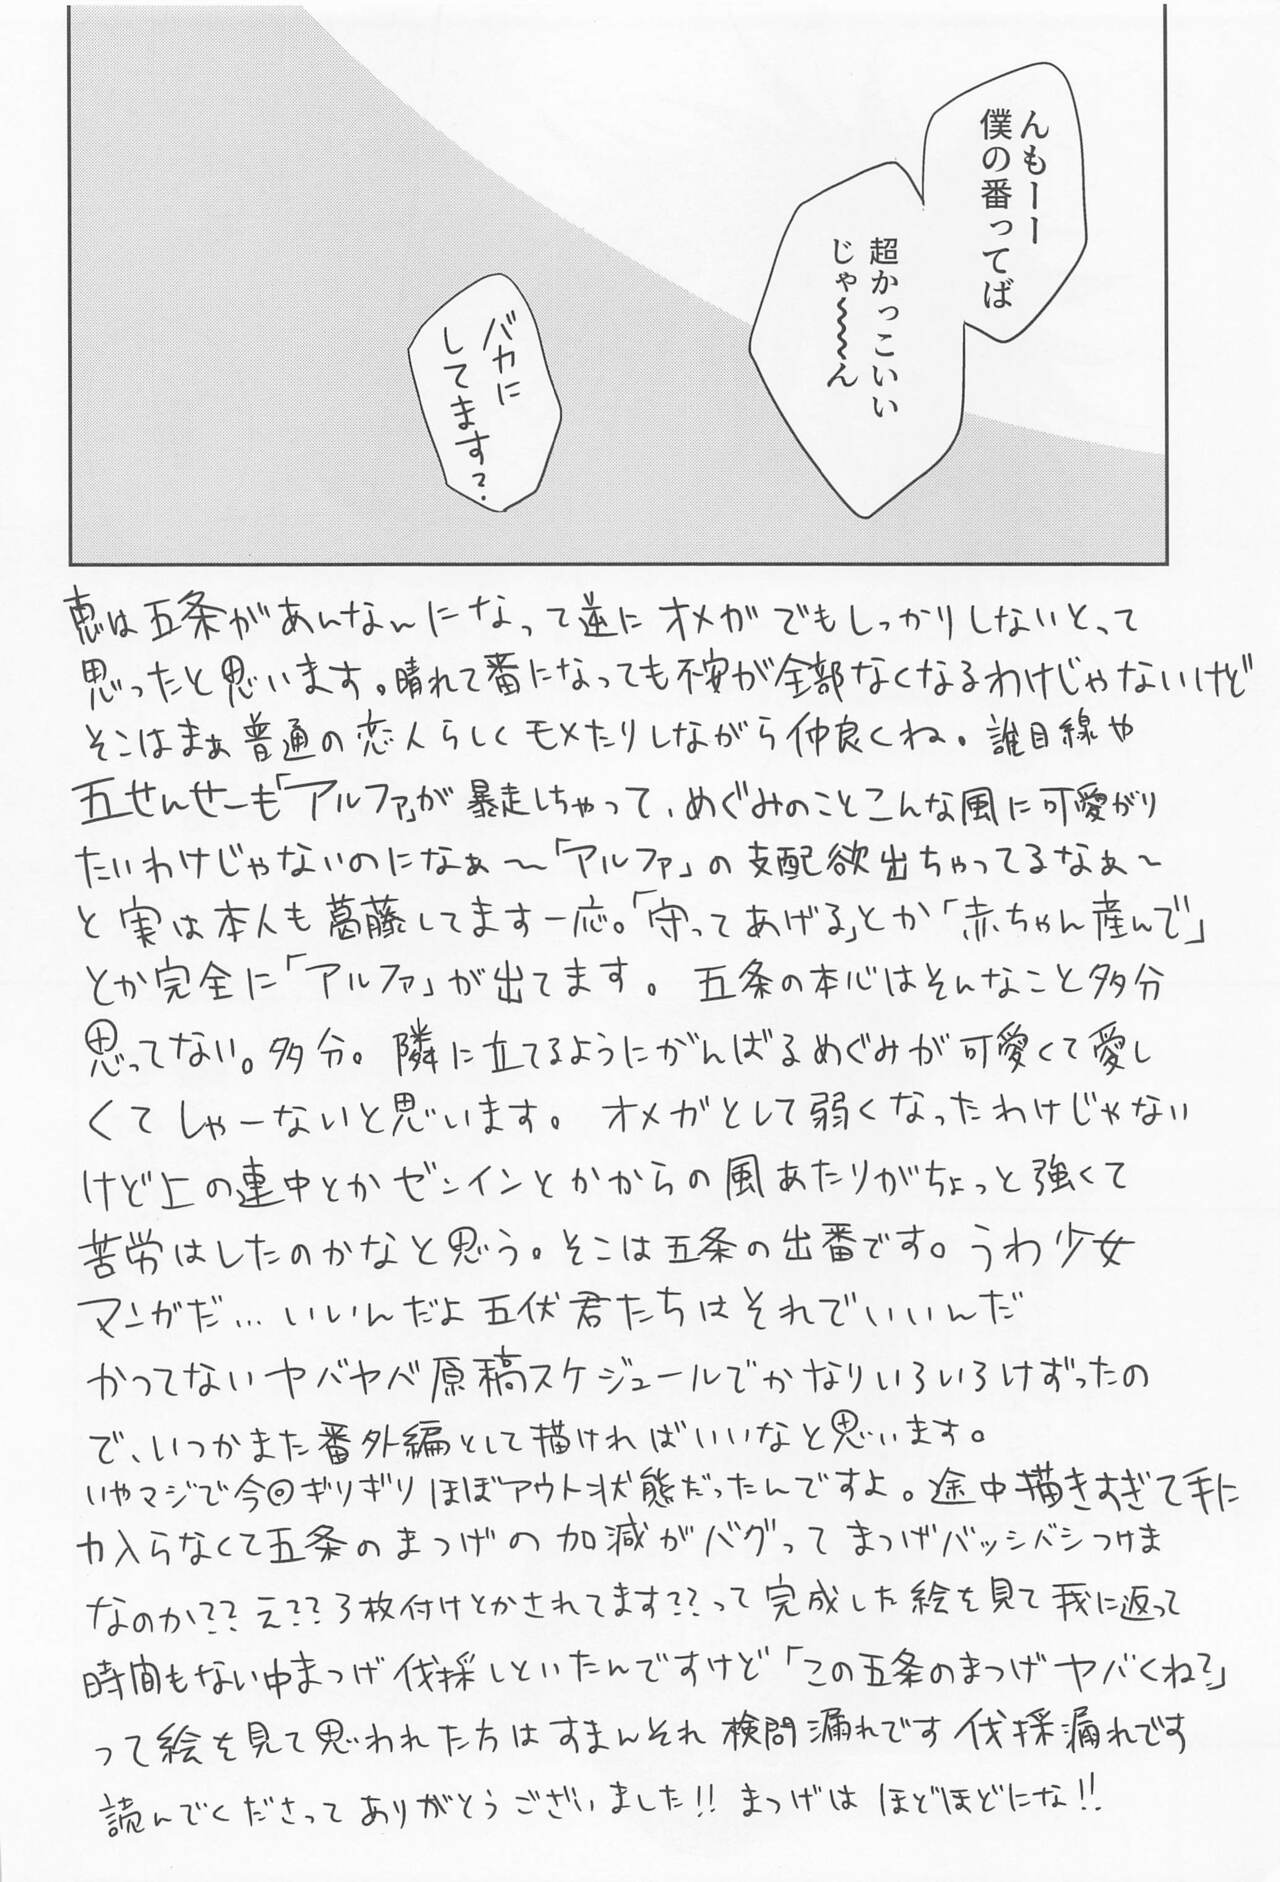 んもーー
僕の番ってば
超かっこいい
じゃ〜〜〜ん
バカに
してます?
恵は五条があんなんになって逆にオメガでもしっかりしないとって
思ったと思います。晴れて番になっても不安が全部なくなるわけじゃないけど
そこはまぁ普通の恋人らしくモメたりしながら仲良くね。誰目線や
五せんせーも「アルファ」が暴走しちゃって、めぐみのことこんな風に可愛がり
たいわけじゃないのになぁ〜「アルファ」の支配欲出ちゃってるなぁ〜
と実は本人も葛藤してます一応。「守ってあげる」とか「赤ちゃん産んで」
とか完全に「アルファ」が出てます。五条の本心はそんなこと多分
思ってない。多分。隣に立てるようにがんばるめぐみが可愛くて愛し
くてしゃーないと思います。オメガとして弱くなったわけじゃない
けど上の連中とかゼンインとかからの風あたりがちょっと強くて
苦労はしたのかなと思う。そこは五条の出番です。うわ少女
マンガだ…いいんだよ五伏君たちはそれでいいんだ
かってないヤバヤバ原稿スケジュールでかなりいろいろけずったの
で、いつかまた番外編として描ければいいなと思います。
いやマジで今回ギリギリほぼアウト状態だったんですよ。途中描きすぎて手に
力入らなくて五条のまつげの加減がバグってまつげバッシバシつけま
なのか??え??3枚付けとかされてます??って完成した絵を見て我に返って
時間もない中まつげ伐採しといたんですけど「この五条のまつげヤバくね?」
って絵を見て思われた方はすまんそれ検問漏れです伐採漏れです
読んでくださってありがとうございました!!まつげはほどほどにな!!